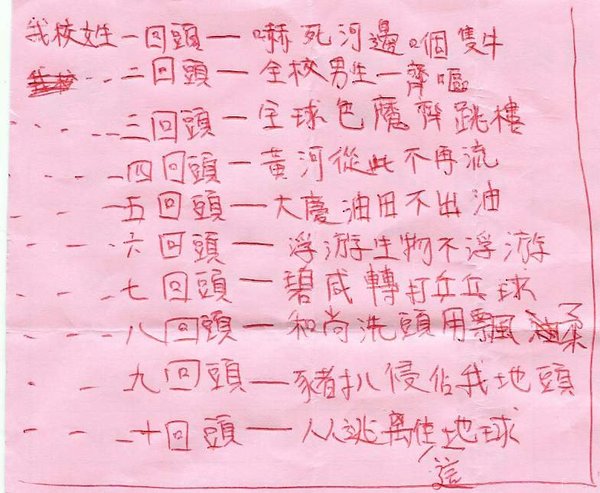 我校女生一回頭—嚇死河邊嗰隻牛
---二回頭—全校男生一齊嘔
---三回頭—全球色魔齊跳樓
---四回頭—黃河從此不再流
---五回頭—大慶油田不出油
---六回頭—浮游生物不浮游
---七回頭—碧咸轉打乒乓球
---八回頭—和尚洗頭用飄柔
---九回頭—豬扒侵佔我地頭
---十回頭—人人逃離這地球